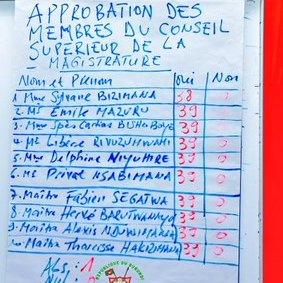 APPROBATION DES
MEMBRES DU CONSEIL
SUPERIEUR DE LA
MAGISTRATURE
Nom et Prénom Oui Non
1 Mme Sylvane BIZIMANA 38 0
2. Ms Emile MAZURU 39 0
3. Mme Spès Caritas 39 0
4. Me Libère RIVUZUMWAMI 39 0
5. Mme Delphine NIYUHIRE 39 0
6. Me Privat NSABIMANA 39 0
7. Maître Fabien SEGATWA 39 0
8. Maître Hervé BARUTWANAYO 39 0
9. Maître Alexis NDUWIMANA 39 0
Maître Tharcisse HAKIZIMANA 39 0
ABS: 1
REPUBLIQUE DU BURUNDI